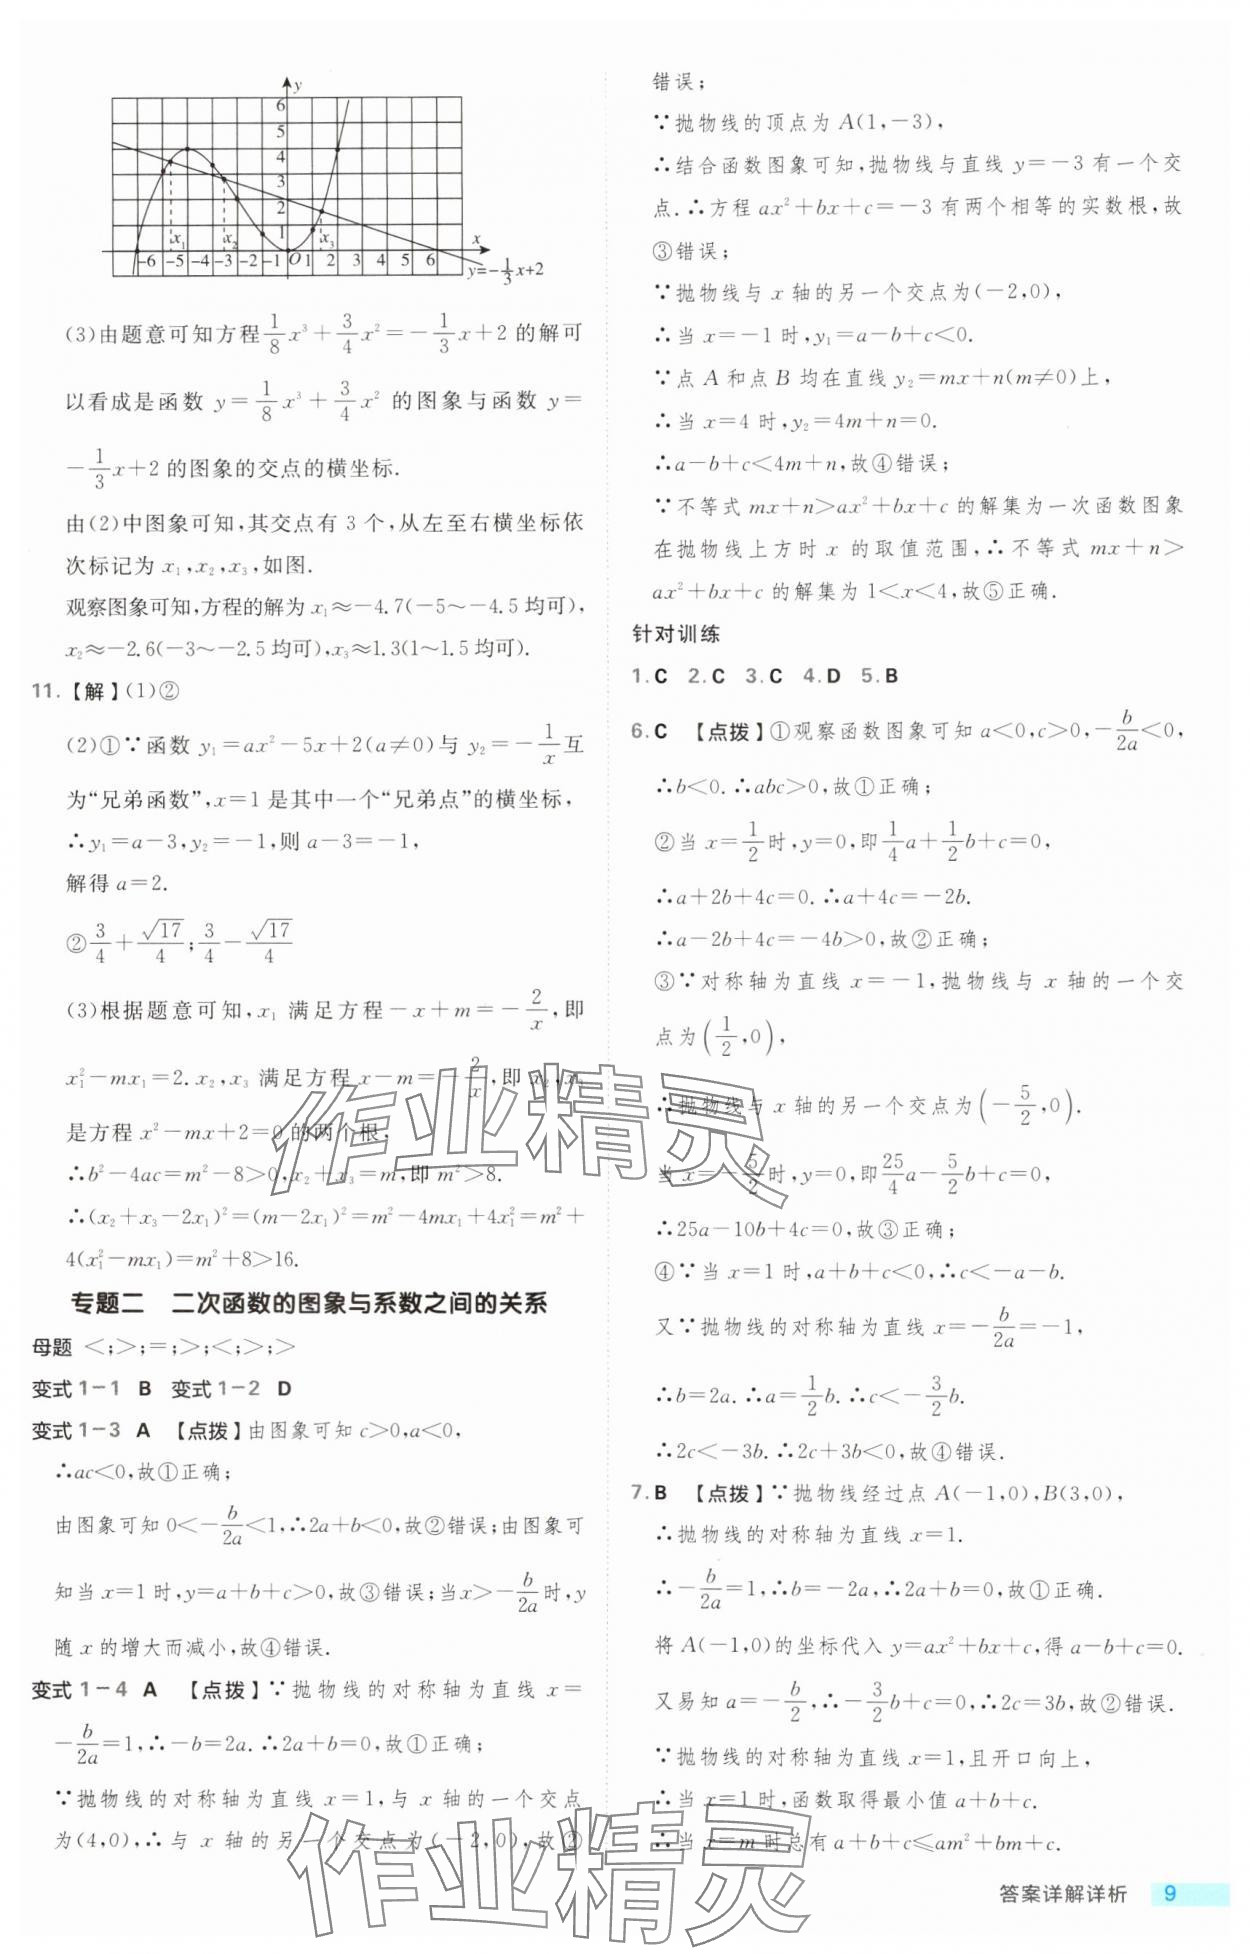 y
6
5
4
3
2
1
x₁ x₂ x₃ x
-6 -5 -4 -3 -2 -1 O 1 2 3 4 5 6
y=-1/3x+2
(3)由题意可知方程1/8x³+3/4x²=-1/3x+2的解可
以看成是函数 y=1/8x³+3/4x² 的图象与函数 y=
-1/3x+2的图象的交点的横坐标.
由(2)中图象可知,其交点有3个,从左至右横坐标依
次标记为 x₁,x₂,x₃,如图.
观察图象可知,方程的解为x₁≈-4.7(-5~-4.5均可),
x₂≈-2.6(-3~-2.5均可),x₃≈1.3(1~1.5均可).
11.【解】(1)②
(2)①∵函数 y₁=ax²-5x+2(a≠0)与 y₂=-1/x互
为“兄弟函数”,x=1是其中一个“兄弟点”的横坐标,
∴y₁=a-3,y₂=-1,则a-3=-1,
解得a=2.
②3/4+√17/4;3/4-√17/4
(3)根据题意可知,x₁ 满足方程-x+m=-2/x,即
x₁²-mx₁=2.x₂,x₃ 满足方程x-m=-2/x,即x₂,x₃
是方程x²-mx+2=0的两个根,
∴b²-4ac=m²-8>0,x₂+x₃=m,即m²>8.
∴(x₂+x₃-2x₁)²=(m-2x₁)²=m²-4mx₁+4x₁²=m²+
4(x₁²-mx₁)=m²+8>16.
专题二 二次函数的图象与系数之间的关系
母题 <;>;=;>;<;>;>
变式1-1 B 变式1-2 D
变式1-3 A 【点拨】由图象可知c>0,a<0,
∴ac<0,故①正确;
由图象可知0<-b/2a<1,∴2a+b<0,故②错误;由图象可
知当x=1时,y=a+b+c>0,故③错误;当x>-b/2a时,y
随x的增大而减小,故④错误.
变式1-4 A 【点拨】∵抛物线的对称轴为直线 x=
-b/2a=1,∴-b=2a.∴2a+b=0,故①正确;
∵抛物线的对称轴为直线 x=1,与 x 轴的一个交点
为(4,0),∴与 x 轴的另一个交点为(-2,0),故②
错误;
∵抛物线的顶点为A(1,-3),
∴结合函数图象可知,抛物线与直线y=-3有一个交
点.∴方程ax²+bx+c=-3有两个相等的实数根,故
③错误;
∵抛物线与x轴的另一个交点为(-2,0),
∴当x=-1时,y₁=a-b+c<0.
∵点A和点B均在直线y₂=mx+n(m≠0)上,
∴当x=4时,y₂=4m+n=0.
∴a-b+c<4m+n,故④错误;
∵不等式mx+n>ax²+bx+c的解集为一次函数图象
在抛物线上方时x的取值范围,∴不等式mx+n>
ax²+bx+c的解集为1<x<4,故⑤正确.
针对训练
1.C 2.C 3.C 4.D 5.B
6.C 【点拨】①观察函数图象可知a<0,c>0,-b/2a<0,
∴b<0.∴abc>0,故①正确;
②当x=1/2时,y=0,即1/4a+1/2b+c=0,
∴a+2b+4c=0.∴a+4c=-2b.
∴a-2b+4c=-4b>0,故②正确;
③∵对称轴为直线 x=-1,抛物线与 x 轴的一个交
点为(1/2,0),
∴抛物线与 x 轴的另一个交点为(-5/2,0).
当x=-5/2时,y=0,即25/4a-5/2b+c=0,
∴25a-10b+4c=0,故③正确;
④∵当x=1时,a+b+c<0,∴c<-a-b.
又∵抛物线的对称轴为直线x=-b/2a=-1,
∴b=2a.∴a=1/2b.∴c<-3/2b.
∴2c<-3b.∴2c+3b<0,故④错误.
7.B 【点拨】∵抛物线经过点A(-1,0),B(3,0),
∴抛物线的对称轴为直线x=1.
∴-b/2a=1,∴b=-2a,∴2a+b=0,故①正确.
将A(-1,0)的坐标代入y=ax²+bx+c,得a-b+c=0.
又易知a=-b/2,∴-3/2b+c=0,∴2c=3b,故②错误.
∵抛物线的对称轴为直线x=1,且开口向上,
∴当x=1时,函数取得最小值a+b+c.
∴当x=m时总有a+b+c≤am²+bm+c.
作业精灵
作业精灵
答案详解详析 9